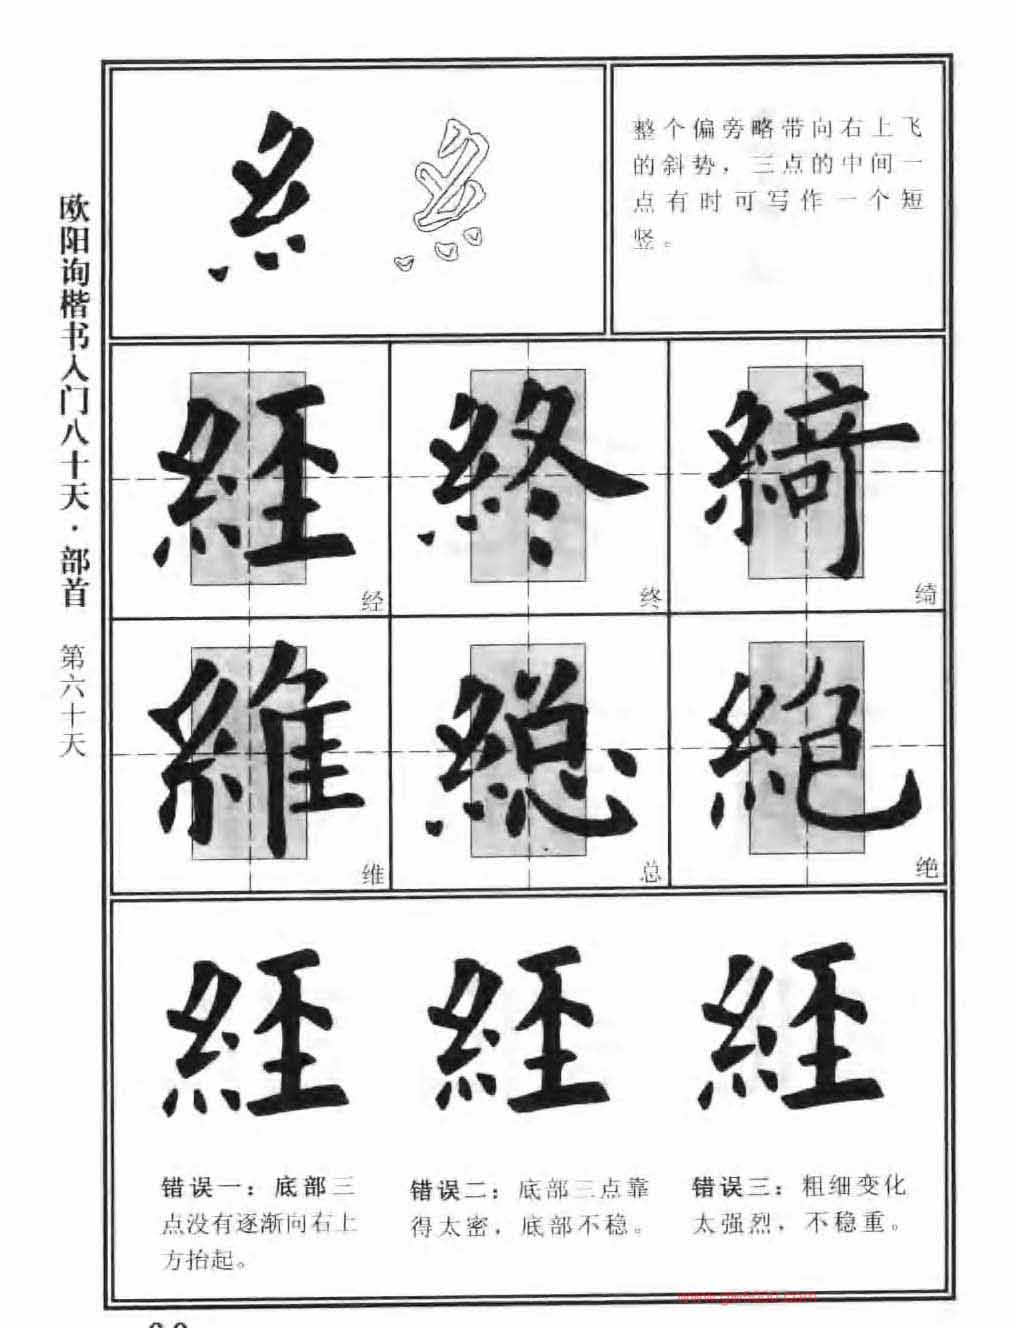 欧阳询楷书入门八十天·部首 第六十天
整个偏旁略带向右上飞
的斜势，三点的中间一
点有时可写作一个短
竖。
經 終 綺
经 终 绮
維 總 絕
维 总 绝
經 經 經
错误一：底部三
点没有逐渐向右上
方抬起。
错误二：底部三点靠
得太密，底部不稳。
错误三：粗细变化
太强烈，不稳重。